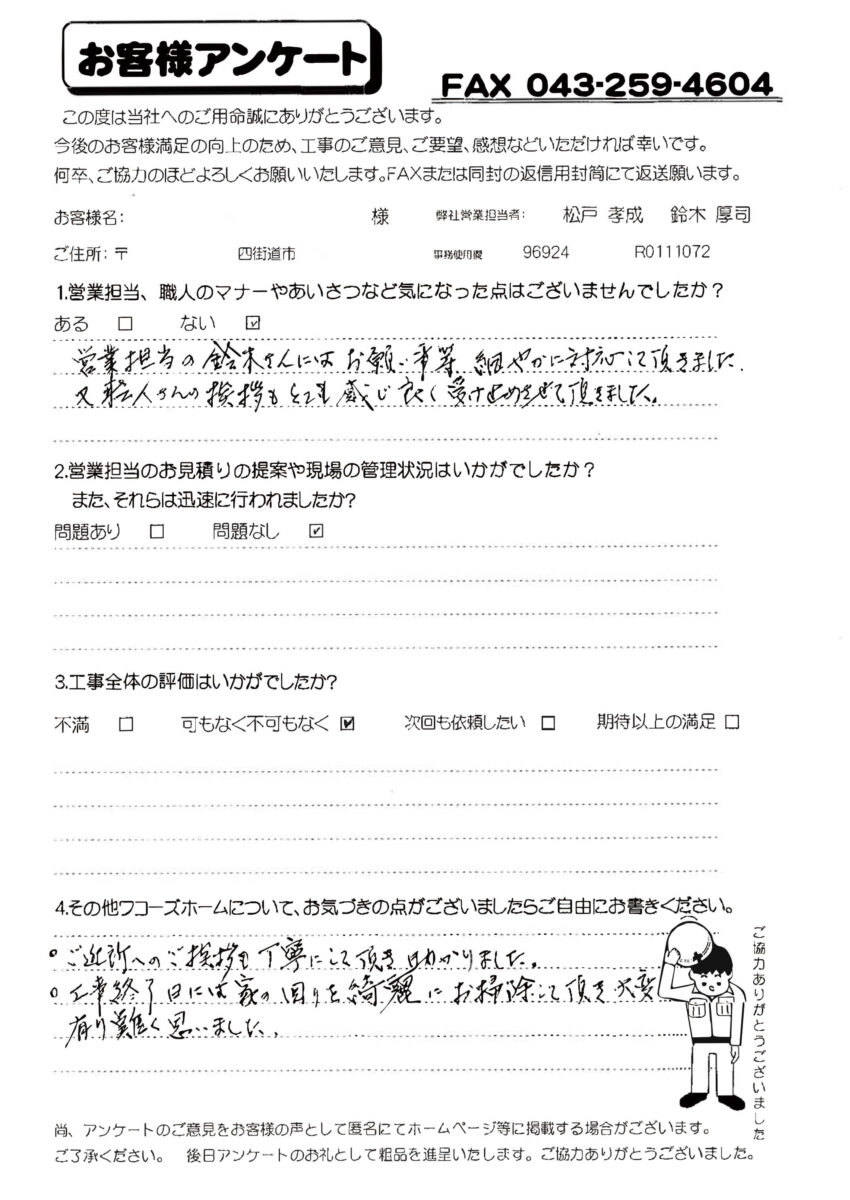 お客様アンケート
FAX 043-259-4604
この度は当社へのご用命誠にありがとうございます。
今後のお客様満足の向上のため、工事のご意見、ご要望、感想などいただければ幸いです。
何卒、ご協力のほどよろしくお願いいたします。FAXまたは同封の返信用封筒にて返送願います。
お客様名: 様 弊社営業担当者: 松戸 孝成 鈴木 厚司
ご住所:〒 四街道市 事務使用欄 96924 R0111072
1.営業担当、職人のマナーやあいさつなど気になった点はございませんでしたか?
ある □ ない ☑
営業担当の鈴木さんにはお願い事等 細やかに対応して頂きました.
又職人さんの挨拶もとても感じ良く受け止めさせて頂きました。
2.営業担当のお見積りの提案や現場の管理状況はいかがでしたか?
また、それらは迅速に行われましたか?
問題あり □ 問題なし ☑
3.工事全体の評価はいかがでしたか?
不満 □ 可もなく不可もなく ☑ 次回も依頼したい □ 期待以上の満足 □
4.その他ワコーズホームについて、お気づきの点がございましたらご自由にお書きください。
○ご近所へのご挨拶も丁寧にして頂き助かりました。
○工事終了日には家の回りを綺麗にお掃除して頂き大変
有り難く思いました.
ご協力ありがとうございました
尚、アンケートのご意見をお客様の声として匿名にてホームページ等に掲載する場合がございます。
ご了承ください。 後日アンケートのお礼として粗品を進呈いたします。ご協力ありがとうございました。